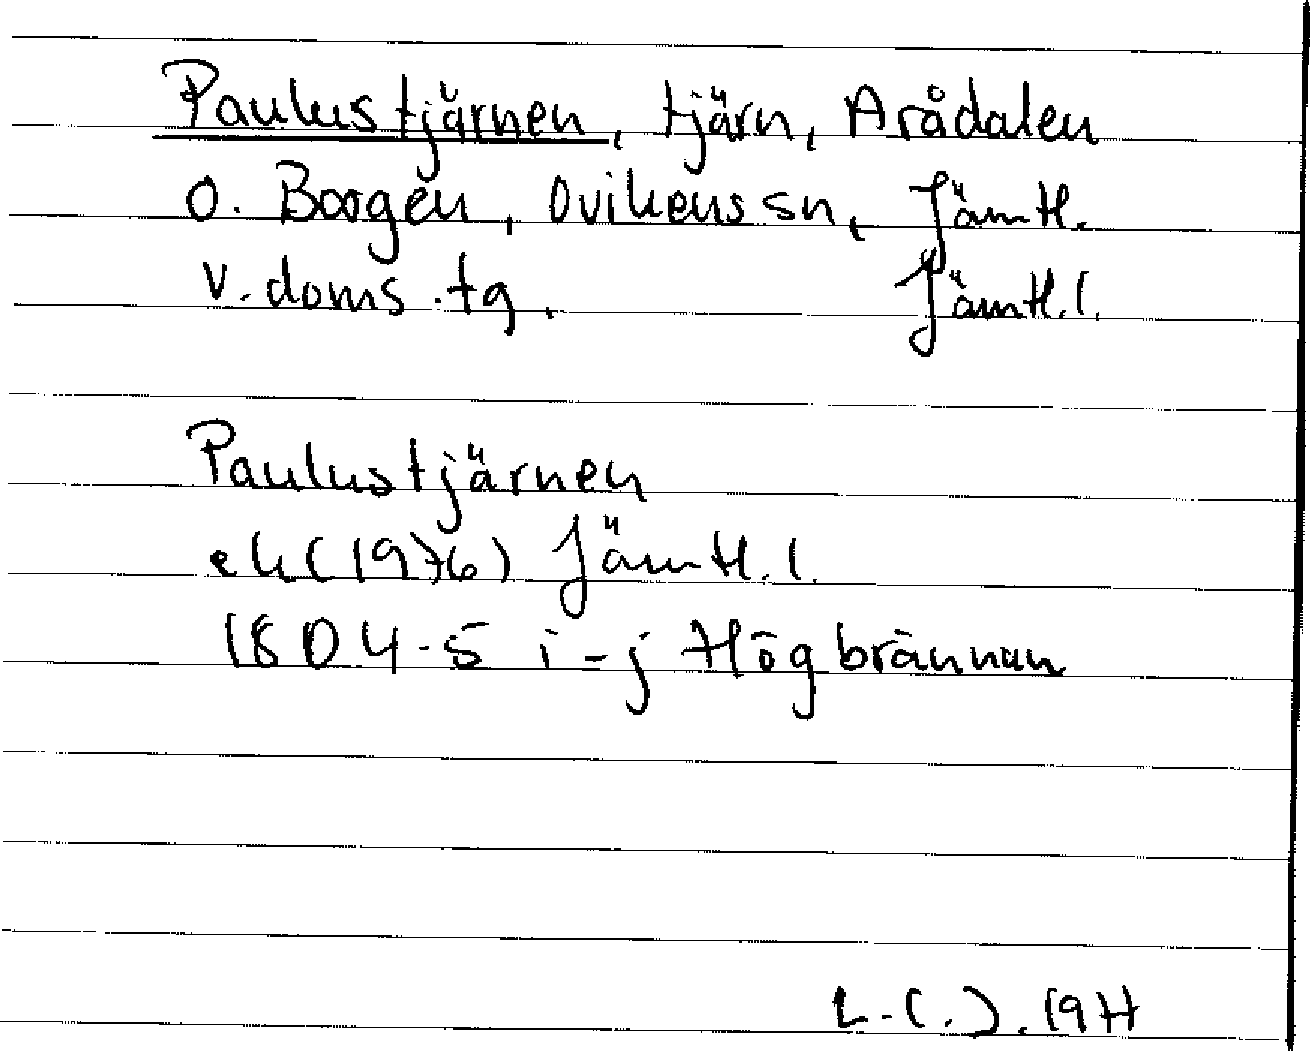 Paulustjärnen, tjärn, Arådalen
o. Börgen, Ovikens sn, Jämtl.
v. doms. tg. Jämtl. l.
Paulustjärnen
ek (1976) Jämtl. l.
18D 4-5 i-j Högbrännan